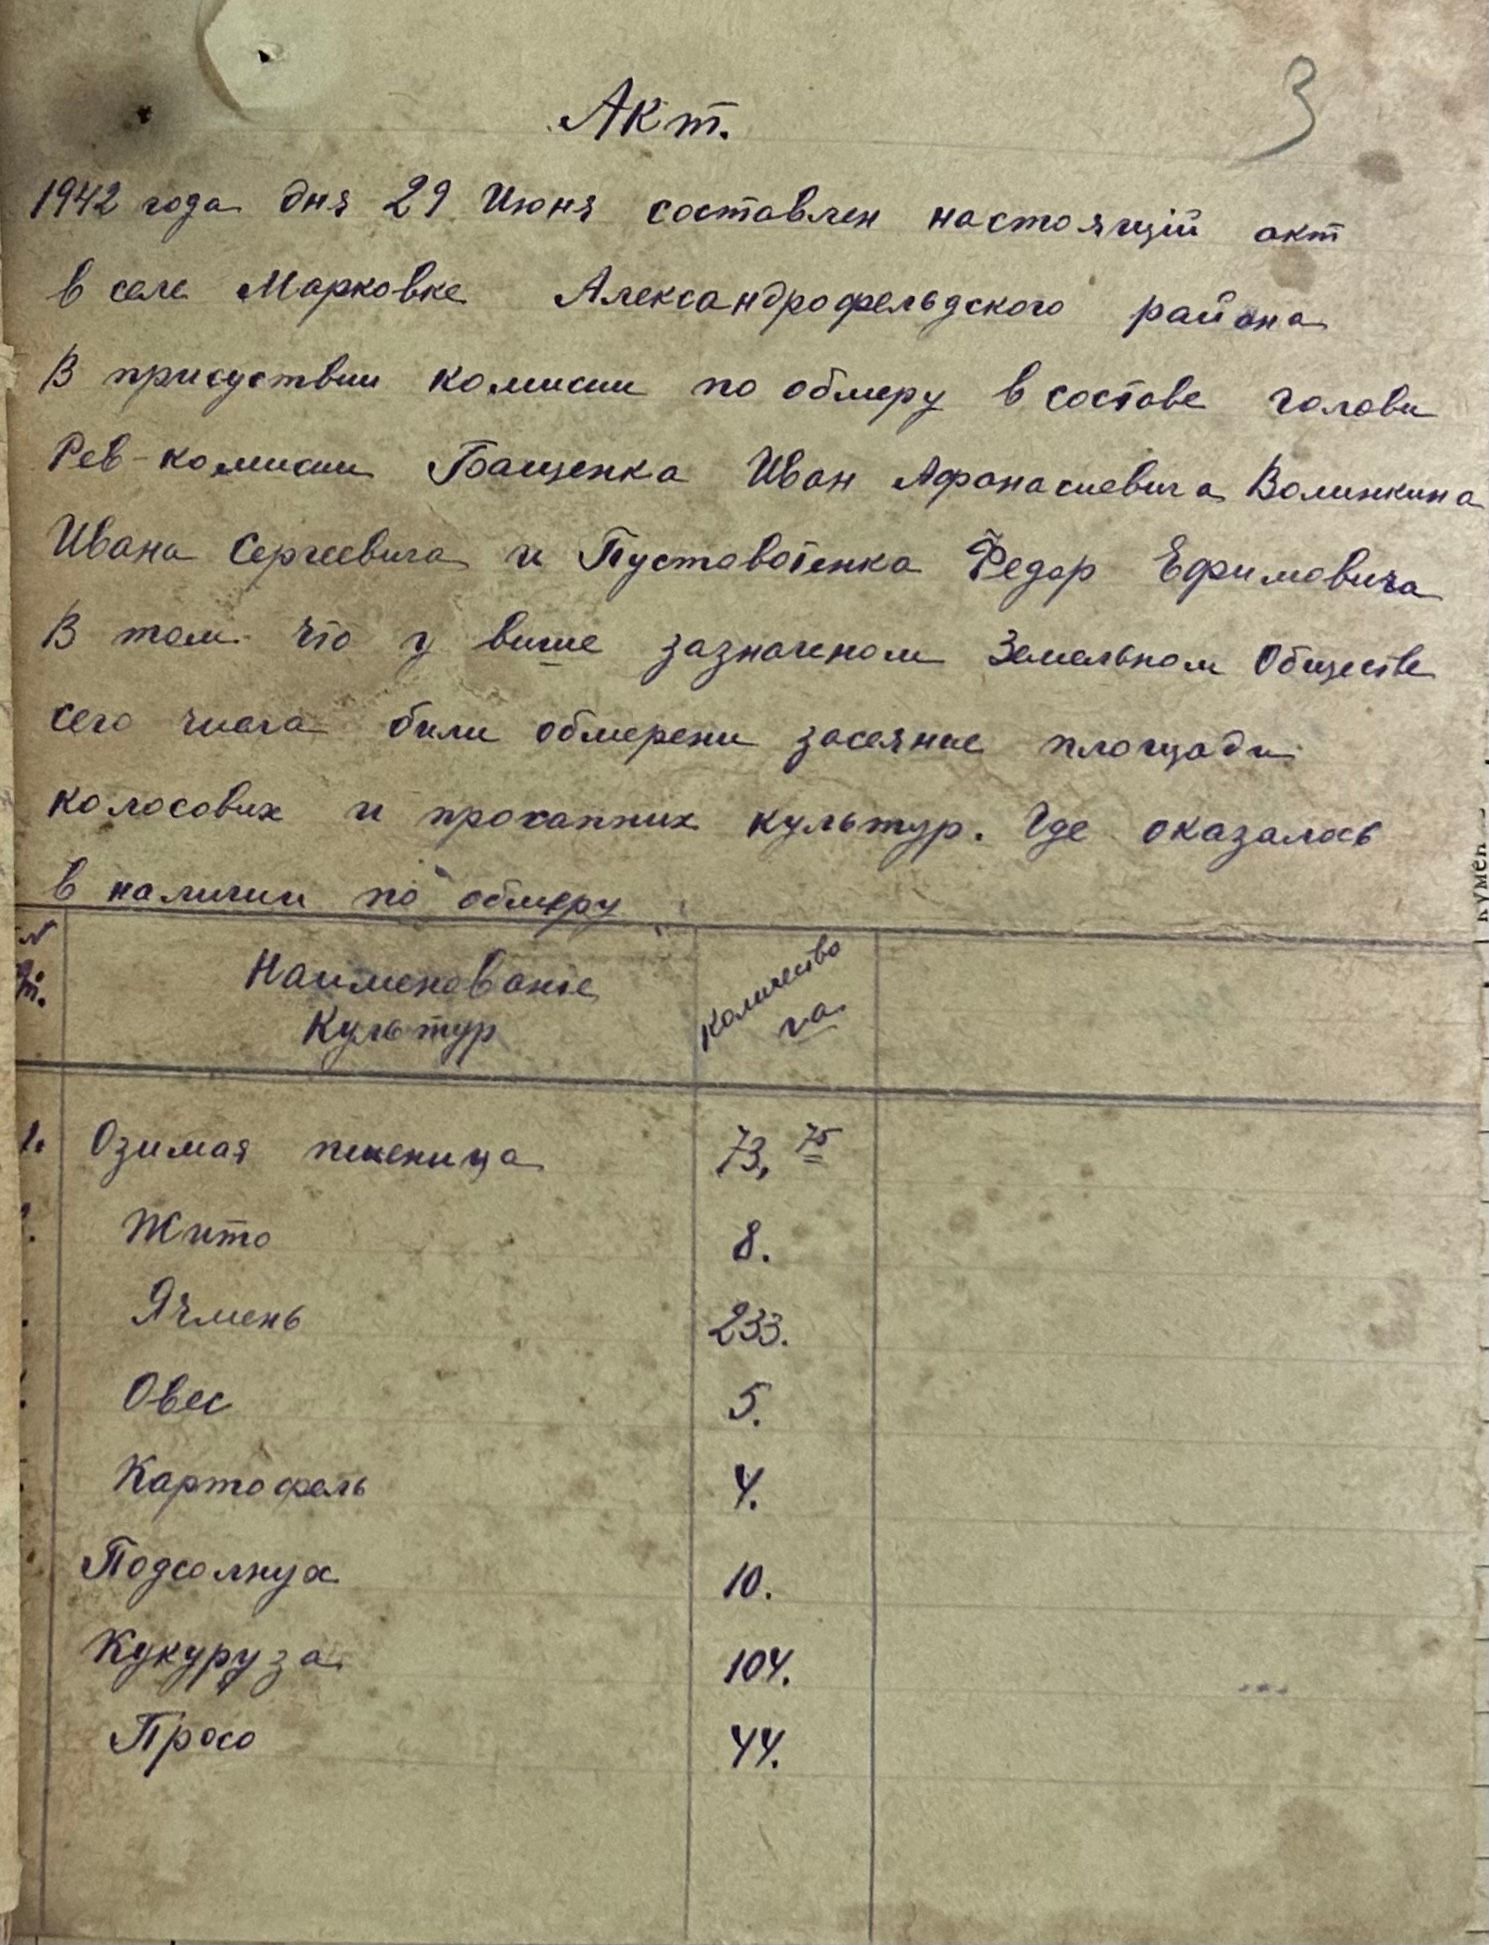 3
Акт.
1942 года дня 29 Июня составлен настоящій акт
в селе Марковке Александрофельдского района
В присуствии комисии по обмеру в состове голови
Рев-комисии Бащенка Иван Афанасиевича Волинкина
Ивана Сергеевича и Пустовотенка Федор Ефимовича
В том что у више зазначеном Земельном Обществе
сего числа били обмерени засеяние площади
колосових и прохапних культур. Где оказалось
в наличии по обмеру
Наименованіе Культур
Количество га
1. Озимая пшеница 73,75
Жито 8.
Ячмень 233.
Овес 5.
Картофель 4.
Подсолнух 10.
Кукуруза 104.
Просо 44.